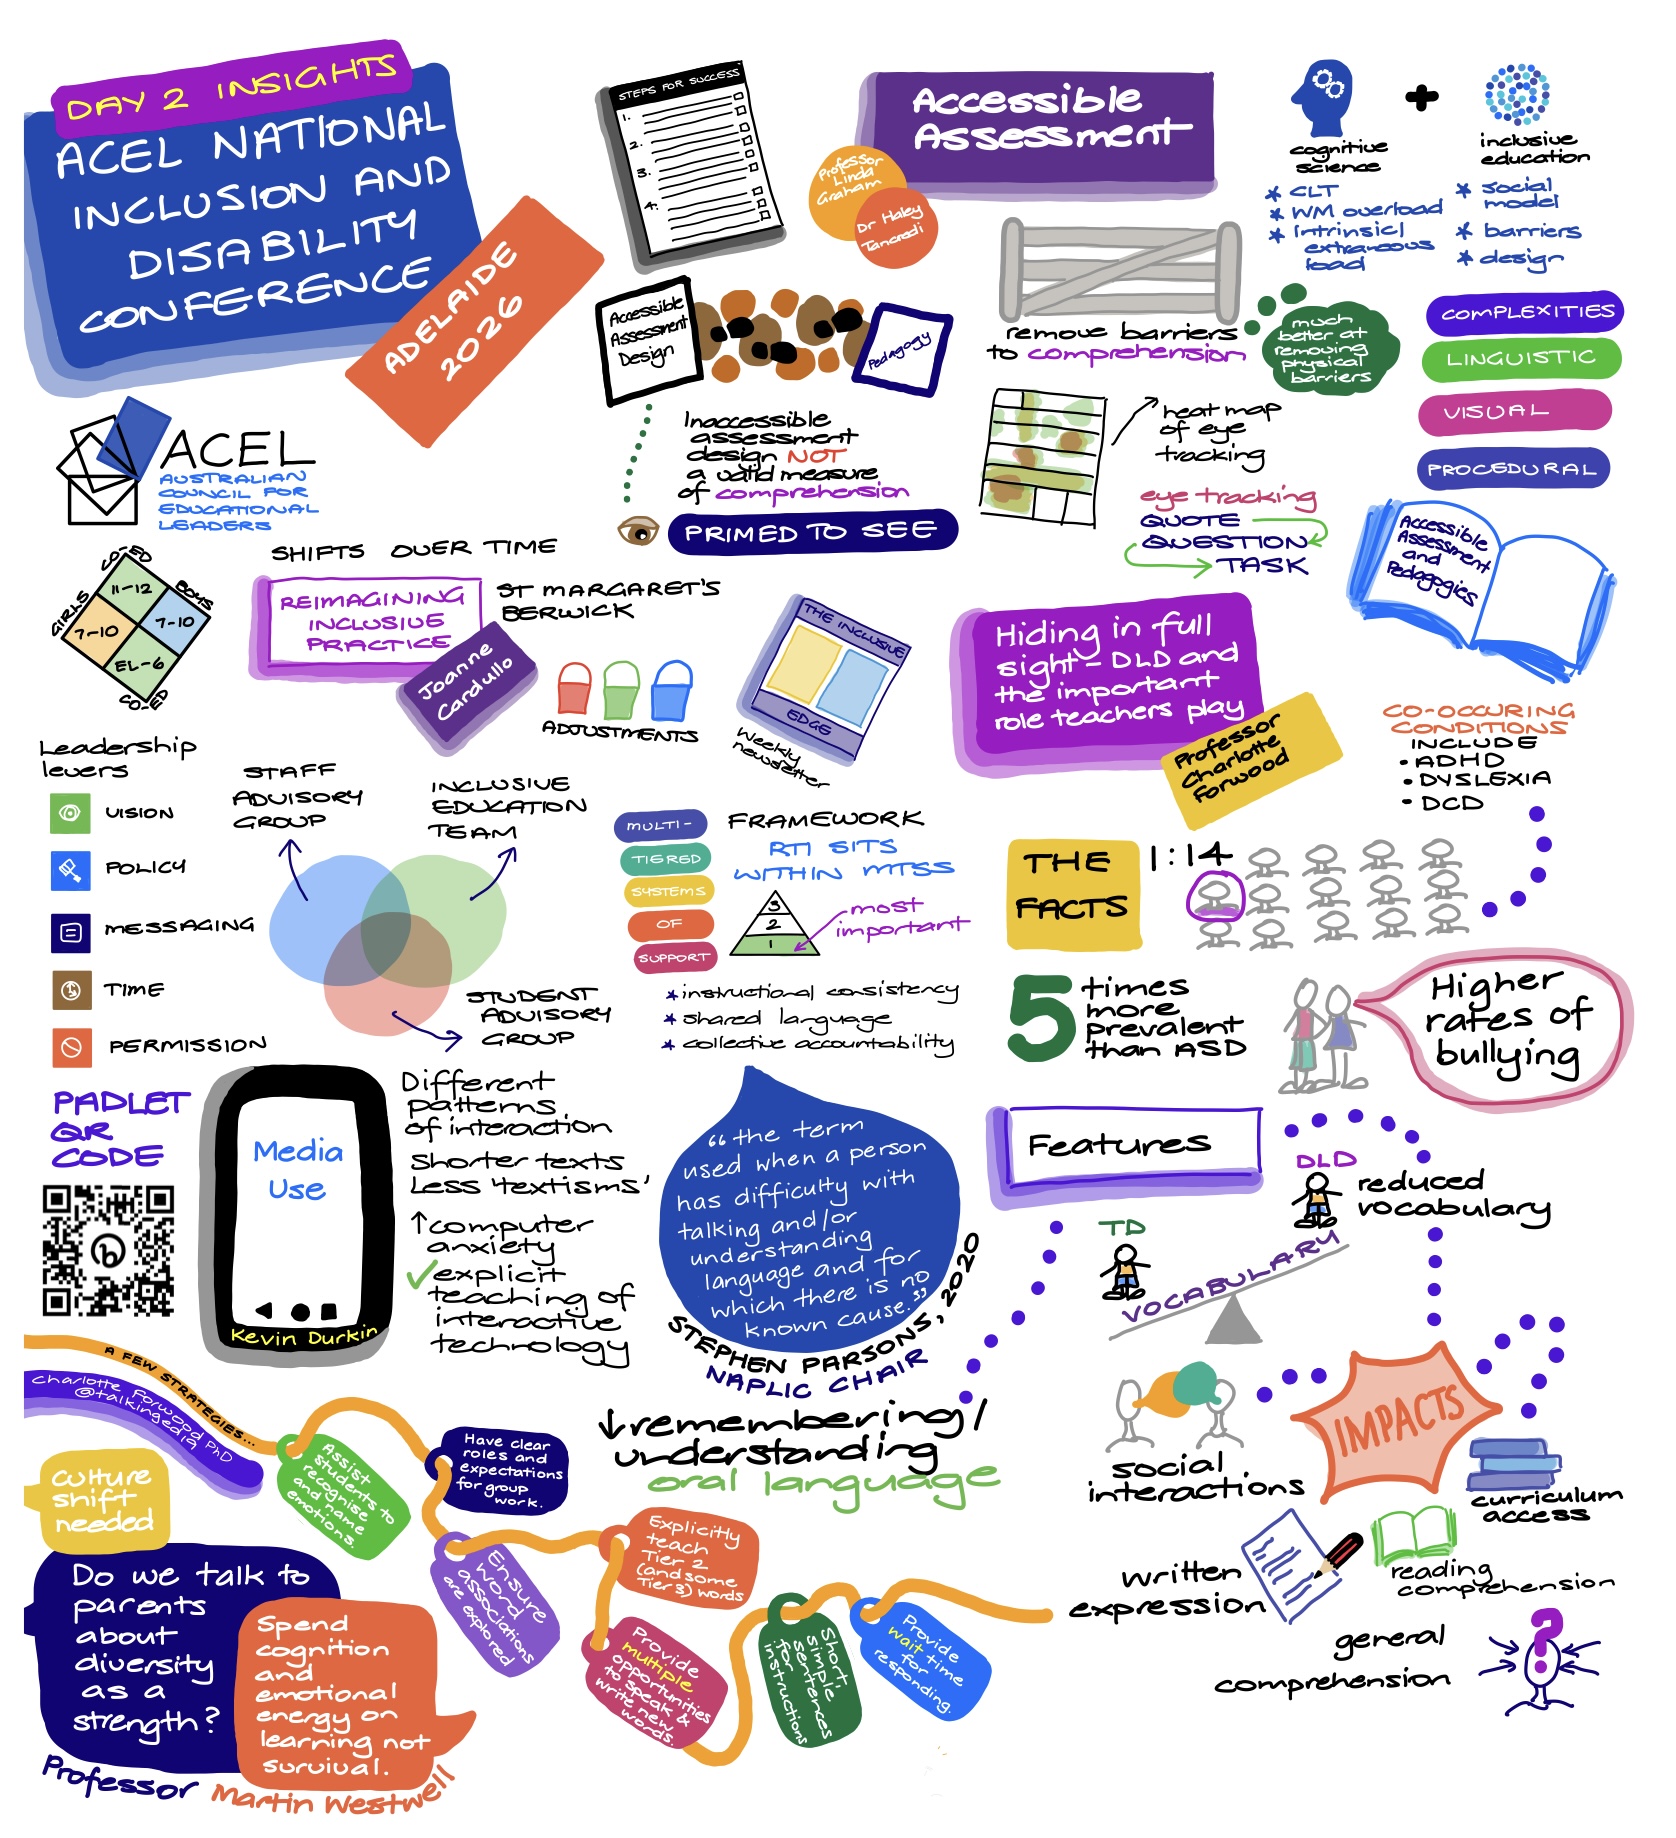 DAY 2 INSIGHTS
ACEL NATIONAL
INCLUSION AND
DISABILITY
CONFERENCE
ADELAIDE
2026
ACEL
AUSTRALIAN
COUNCIL FOR
EDUCATIONAL
LEADERS
STEPS FOR SUCCESS
1.
2.
3.
4.
Accessible
Assessment
Professor
Linda
Graham
Dr Haley
Tancredi
cognitive
science
* CLT
* WM overload
* intrinsic/
extraneous
load
inclusive
education
* social
model
* barriers
* design
Accessible
Assessment
Design
Pedagogy
remove barriers
to comprehension
much
better at
removing
physical
barriers
COMPLEXITIES
LINGUISTIC
VISUAL
PROCEDURAL
Inaccessible
assessment
design NOT
a valid measure
of comprehension
PRIMED TO SEE
heat map
of eye
tracking
eye tracking
QUOTE
QUESTION
TASK
Accessible
Assessment
and
Pedagogies
CO-ED
11-12
GIRLS
7-10
BOYS
7-10
EL-6
CO-ED
SHIFTS OVER TIME
REIMAGINING
INCLUSIVE
PRACTICE
ST MARGARET'S
BERWICK
Joanne
Cardullo
ADJUSTMENTS
THE INCLUSIVE
EDGE
Weekly
newsletter
Hiding in full
sight – DLD and
the important
role teachers play
Professor
Charlotte
Forwood
CO-OCCURING
CONDITIONS
INCLUDE
• ADHD
• DYSLEXIA
• DCD
Leadership
levers
VISION
POLICY
MESSAGING
TIME
PERMISSION
STAFF
ADVISORY
GROUP
INCLUSIVE
EDUCATION
TEAM
STUDENT
ADVISORY
GROUP
MULTI-
TIERED
SYSTEMS
OF
SUPPORT
FRAMEWORK
RTI SITS
WITHIN MTSS
3
2
1
most
important
* instructional consistency
* shared language
* collective accountability
THE
FACTS
1:14
5 times
more
prevalent
than ASD
Higher
rates of
bullying
PADLET
QR
CODE
Media
Use
Kevin Durkin
Different
patterns
of interaction
Shorter texts
Less 'textisms'
↑computer
anxiety
✓explicit
teaching of
interactive
technology
“the term
used when a person
has difficulty with
talking and/or
understanding
language and for
which there is no
known cause.”
STEPHEN PARSONS, 2020
NAPLIC CHAIR
Features
DLD
reduced
vocabulary
TD
VOCABULARY
↓remembering/
understanding
oral language
IMPACTS
social
interactions
curriculum
access
written
expression
reading
comprehension
general
comprehension
?
A FEW STRATEGIES...
Charlotte Forwood PhD
@talkingedia
Assist
students to
recognise
and name
emotions.
Have clear
roles and
expectations
for group
work.
Ensure
word
associations
are explored
Explicitly
teach
Tier 2
(and some
Tier 3) words
Provide
multiple
opportunities
to speak &
write new
words.
Short,
simple
sentences
for
instructions
Provide
wait time
for
responding.
culture
shift
needed
Do we talk to
parents
about
diversity
as a
strength?
Spend
cognition
and
emotional
energy on
learning not
survival.
Professor Martin Westwell